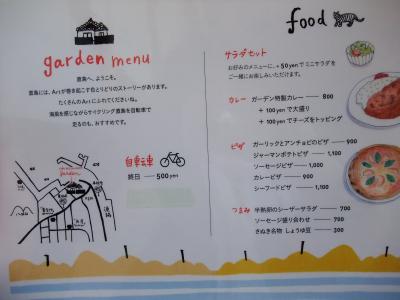 garden menu
直島へ、ようこそ。
直島には、Artが巻き起こす色とりどりのストーリーがあります。
たくさんのArtにふれてくださいね。
潮風を感じながらサイクリング直島を自動車で
走るのも、おすすめです。
自転車
終日 — 500yen
garden
food
サラダセット
お好みのメニューに、+50yenでミニサラダを
ご一緒にお楽しみいただけます。
カレー ガーデン特製カレー — 800
+100yenで大盛り
+100yenでチーズをトッピング
ピザ ガーリックとアンチョビのピザ — 900
ジャーマンポテトピザ — 1,100
ソーセージピザ — 1,000
カレーピザ — 900
シーフードピザ — 1,100
つまみ 半熟卵のシーザーサラダ — 700
ソーセージ盛り合わせ — 700
さぬき名物 しょうゆ豆 — 300